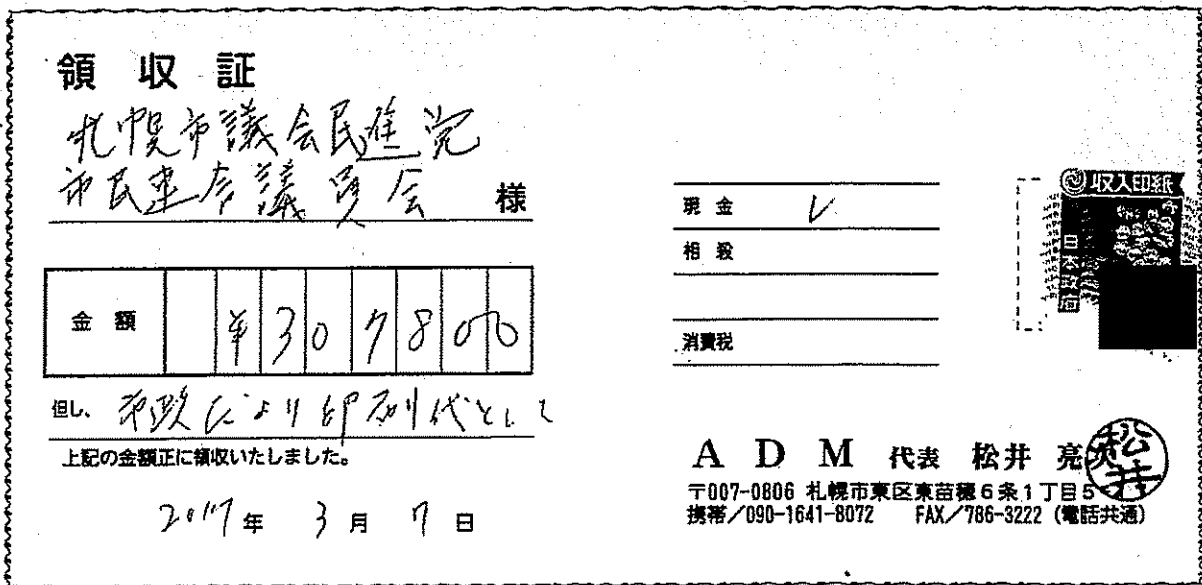 領収証
札幌市議会民進党
市民連合議員会 様
金額 ¥307800
但し、市政だより印刷代として
上記の金額正に領収いたしました。
2017年 3月 7日
現金 レ
相殺
消費税
収入印紙
ADM 代表 松井 亮
松井
〒007-0806 札幌市東区東苗穂6条1丁目5
携帯/090-1641-8072 FAX/786-3222(電話共通)